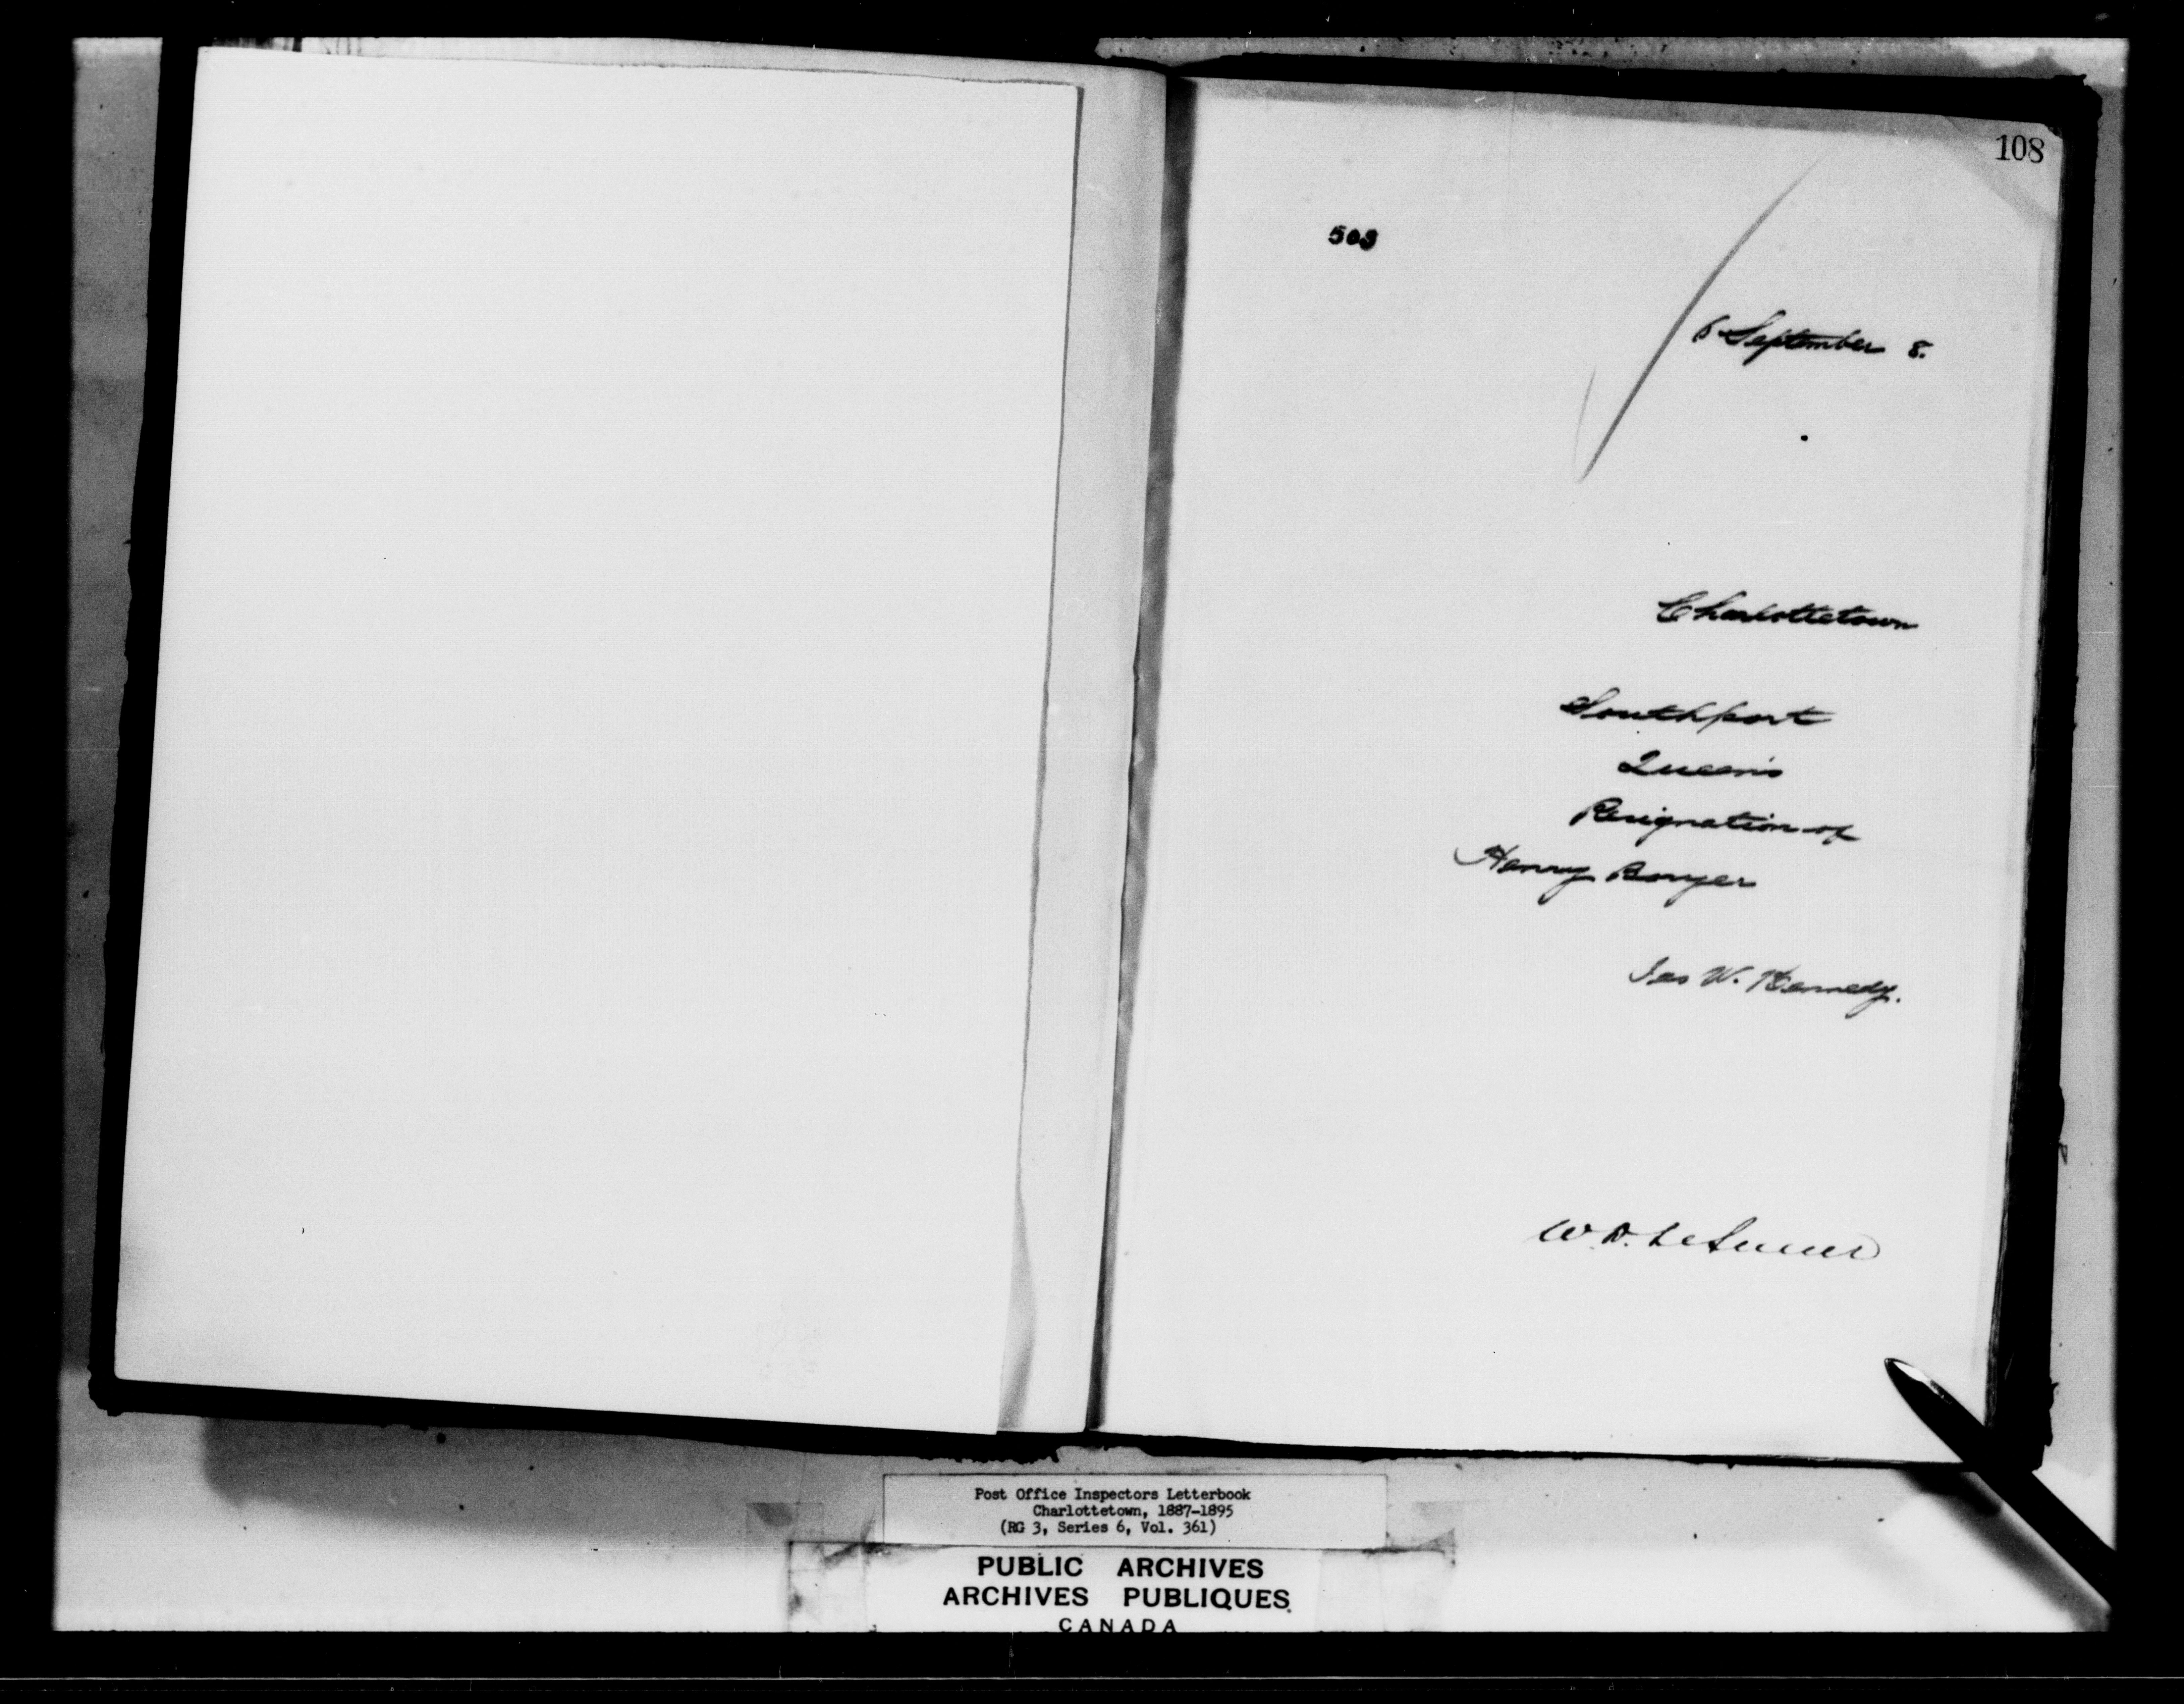 108
503
6 September 8.
Charlottetown
Southport
Queen's
Resignation of
Henry Bovyer
Jas W. Kennedy.
W. D.
Post Office Inspectors Letterbook
Charlottetown, 1887-1895
(RG 3, Series 6, Vol. 361)
PUBLIC ARCHIVES
ARCHIVES PUBLIQUES
CANADA